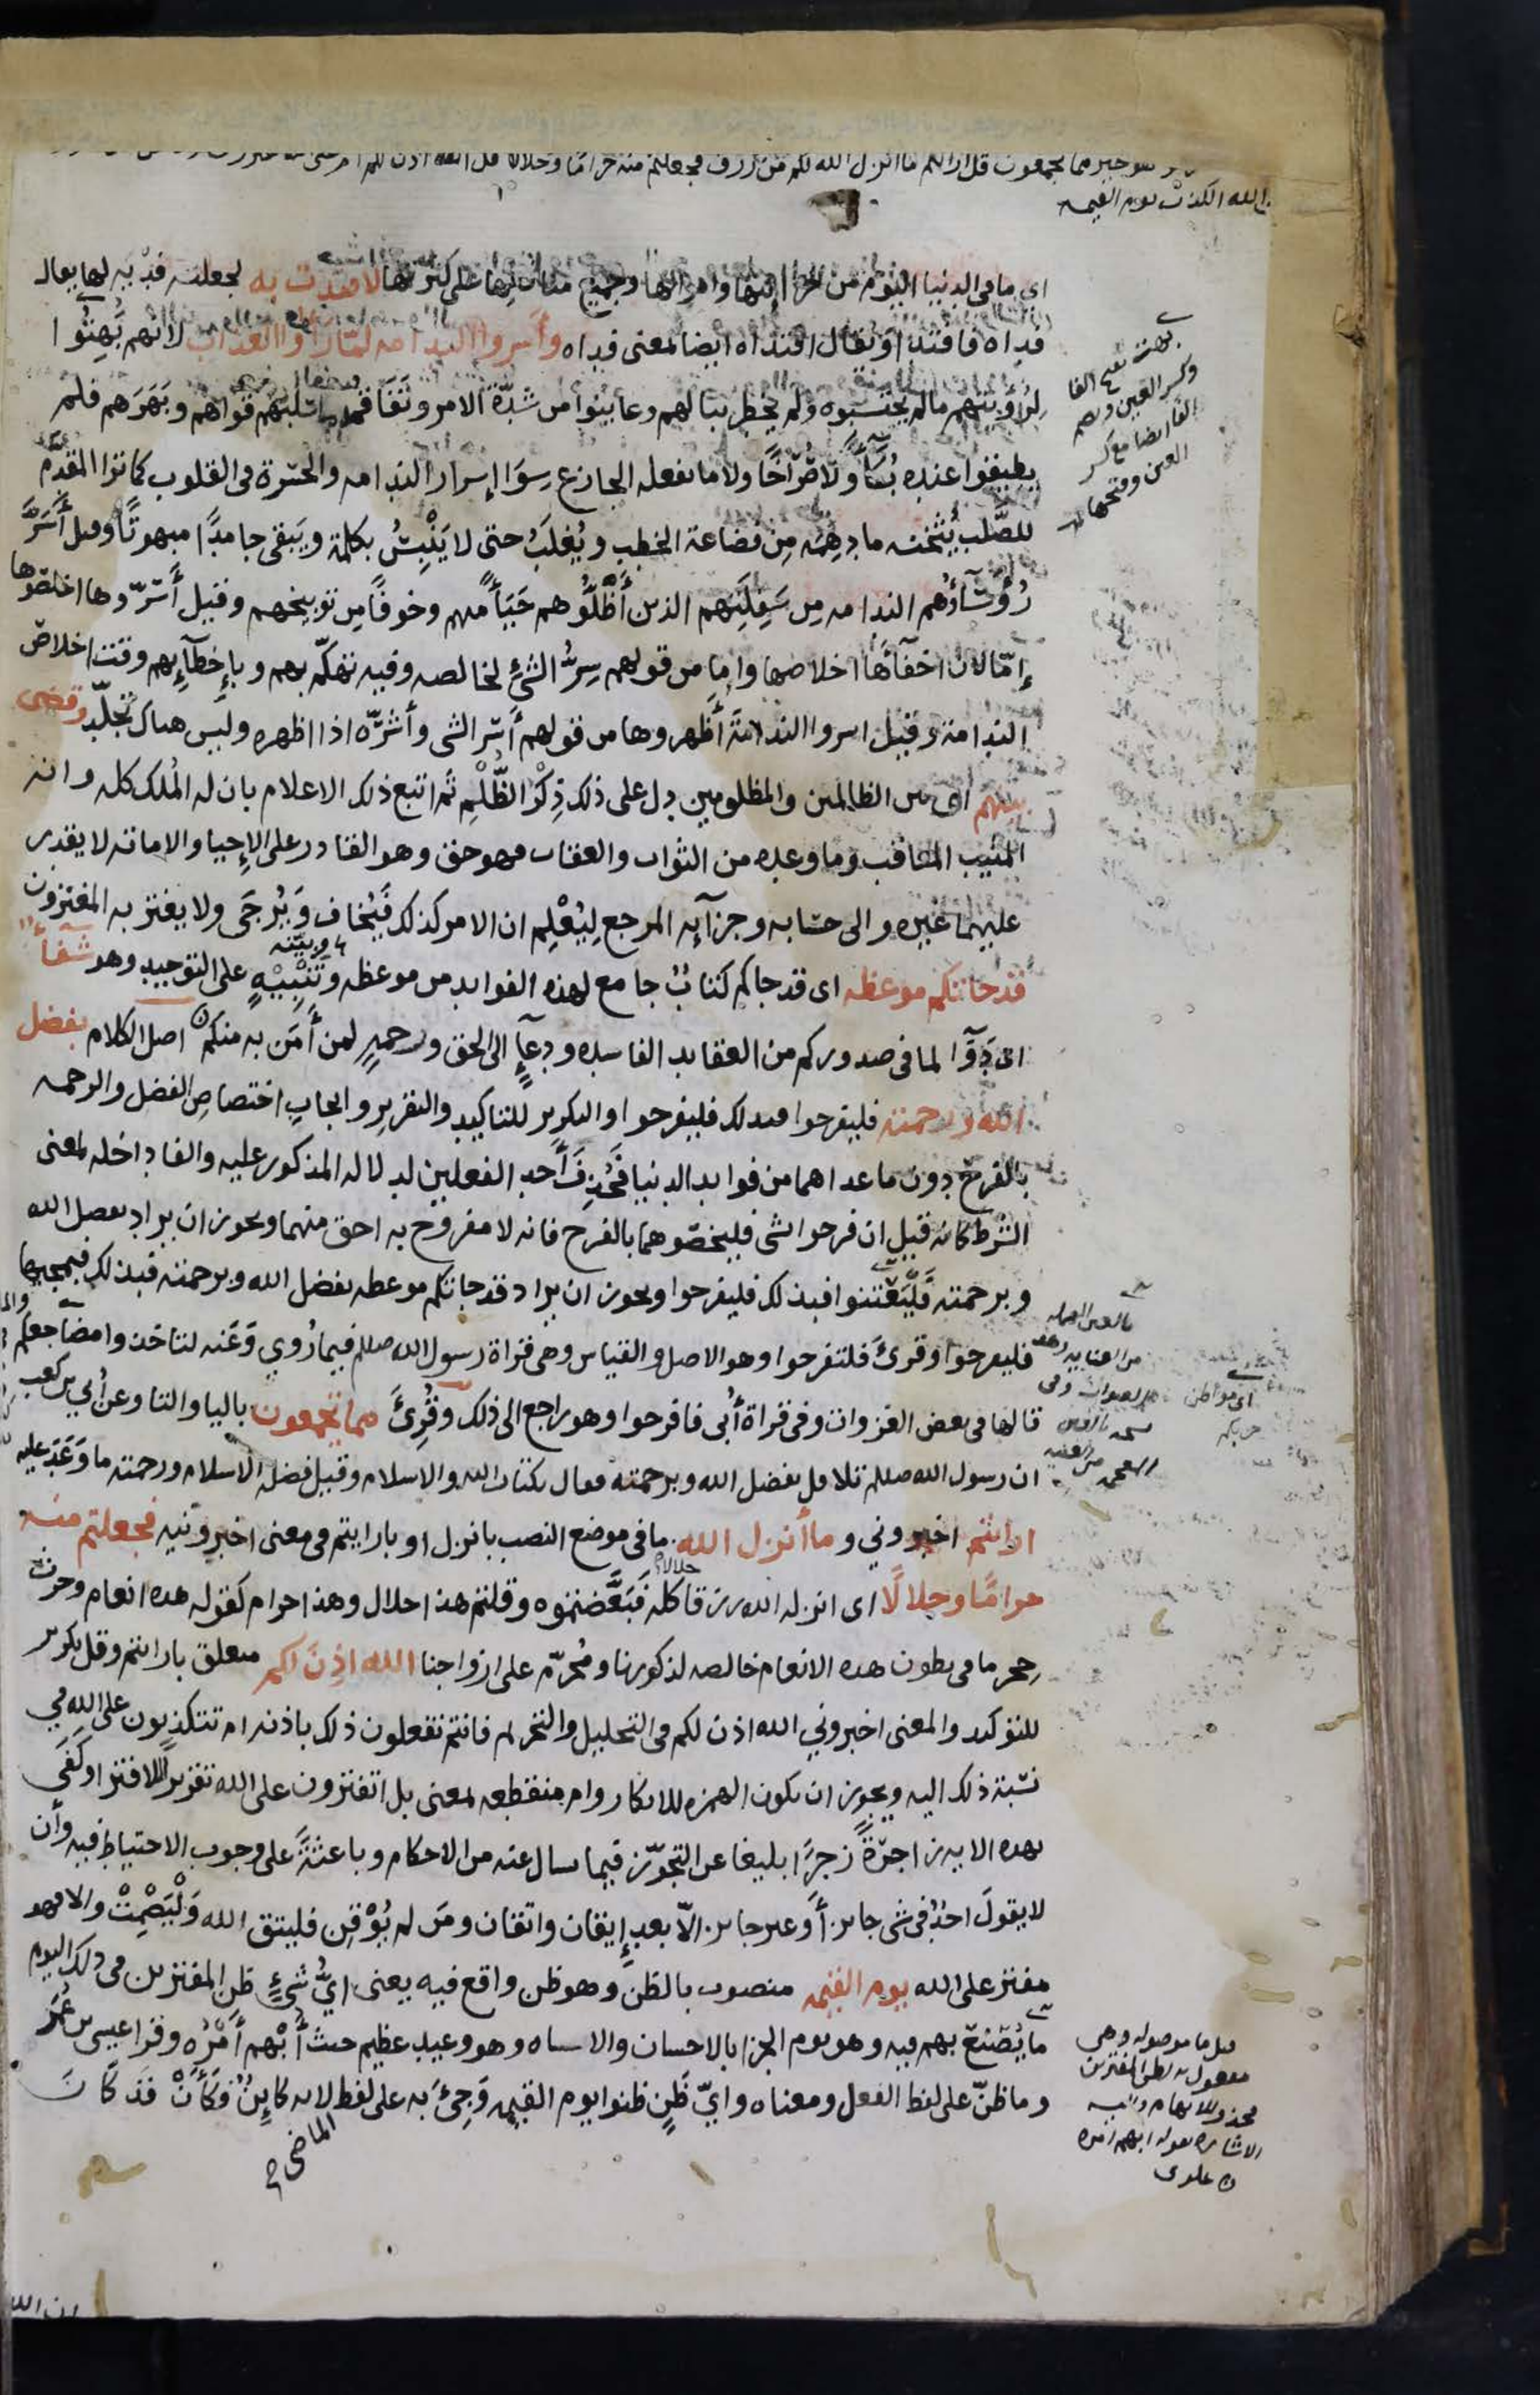 خير مما يجمعون قل ارايتم ما انزل الله لكم من رزق فجعلتم منه حراما وحلالا قل الله اذن لكم ام على الله
الله الكذب يوم القيمه
اى ما فى الدنيا اليوم من خزاينها واموالها وجميع منافعها على كثرتها لافتدت به لجعلته فدية لها يقال
فداه فافتدا ويقال افتداه ايضا بمعنى فداه وأسروا الندامه لما راوا العذاب لانهم بُهِتُوا
لرُؤيتهم مالم يحتسبوه ولم يخطر ببالهم وعاينوا من شدّة الامر وتفاقمه ما سلبهم قواهم وبَهَرَهم فلم
يطيقوا عنده بُكآءً ولا صُرَاخًا ولا ما يفعله الجازع سِوَا إسرار الندامه والحسرة فى القلوب كما ترا المقدَّم
للصَّلب يُثْخنه ما دهِمَه مِن فضاعة الخطب ويُغلَبُ حتى لا يَنْبِسُ بكلمة ويَبقى جامدًا مبهوتًا وقيل أَسَرَّ
رُؤَسَآؤُهم الندامه مِن سَفِلَتِهم الذين أضَلُّوهم حَيَآءً منهم وخوفًا من توبيخهم وقيل أسَرّوها اخلصوها
إمّا لان اخفآءَهَا اخلاصها واما من قولهم سِرُّ الشئِ لخالصه وفيه تهكّم بهم وبإخطآئِهم وقت اخلاص
الندامة وقيل اسروا الندامَةَ أظهروها من قولهم أسَرّ الشى وأشرّه اذا اظهره وليس هناك تجلّد وقضى
بينهم اى بين الظالمين والمظلومين دل على ذلك ذِكْرُ الظُّلْمِ ثم اتبع ذلك الاعلام بان له المُلك كله وانه
المثيب المعاقب وما وعده من الثواب والعقاب فهو حق وهو القادر على الإحيا والاماتة لا يقدر
عليهما غيره والى حسابه وجزآئِه المرجع لِيُعْلم ان الامر كذلك فَيُخاف وَيُرجَى ولا يغتر به المغترون
قد جاتكم موعظه اى قد جاكم كتابٌ جامع لهذه الفوايد من موعظه وتَنْبِيْهٍ على التوحيد وهو شفآءٌ
اى دَوَآءٌ لما فى صدوركم من العقايد الفاسده ودعآءٍ الى الحق ورحمةٍ لمن أَمَن به منكم اصل الكلام بفضل
الله وبرحمته فليفرحوا فبذلك فليفرحوا والتكرير للتاكيد والتقرير وايجابِ اختصاص الفضل والرحمه
بالفرح دون ما عداهما من فوايد الدنيا فَحُذِفَ أحد الفعلين لدلاله المذكور عليه والفا داخله لمعنى
الشرط كانه قيل ان فرحوا بشى فليخصّوهما بالفرح فانه لا مفروح به احق منهما ويجوز ان يراد بفضل الله
وبرحمته فَلْيَعْتنوا فبذلك فليفرحوا ويجوز ان يراد قد جاتكم موعظه بفضل الله وبرحمته فبذلك فبمجيها
فليفرحوا وقرئَ فلتفرحوا وهو الاصل والقياس وهى قراة رسول الله صللم فيما رُوي وَعَنه لتاخذوا مضاجعكم
قالها فى بعض الغزوات وفى قراة أُبى فافرحوا وهو راجع الى ذلك وقُرِئَ مما تجمعون باليا والتا وعن أُبي بن كعب
ان رسول الله صللم تلا قل بفضل الله وبرحمته فقال بكتاب الله والاسلام وقيل فضله الاسلام ورحمته ما وَعَدَ عليه
ارايتم اخبروني وما أنزل الله ما فى موضع النصب بانزل او بارايتم فى معنى اخبرونيه فجعلتم منه
حرامًا وحلالًا اى انزله الله رزقا حلالا كله فَبَعَّضتموه وقلتم هذا حلال وهذا حرام كقوله هذه انعام وحرث
حجر ما فى بطون هذه الانعام خالصه لذكورنا ومُحرّم على ازواجنا الله اذِنَ لكم متعلق بارايتم وقل تكرير
للتوكيد والمعنى اخبروني الله اذن لكم فى التحليل والتحريم فانتم تفعلون ذلك باذنه ام تتكذبون على الله في
نسبة ذلك اليه ويجوز ان تكون الهمزه للانكار وام منقطعه بمعنى بل اتفترون على الله تقريرًا للافترا وكَفَى
بهذه الايه زاجرةً زجرًا بليغا عن التجوّز فيما يسال عنه من الاحكام وباعثةً على وجوب الاحتياط فيه وأن
لا يقولَ احدٌ فى شى جايز أو غير جايز الّا بعد إيقان واتقان ومَن لم يُوْقِن فليتق الله وَلْيَصْمِتْ والا فهو
مفتر على الله يوم القيمه منصوب بالظن وهو ظن واقع فيه يعنى ايُّ شئٍ ظن المفترين فى ذلك اليوم
ما يُصْنع بهم فيه وهو يوم الجزا بالاحسان والاساه وهو وعيد عظيم حيث أُبْهم أمْرُه وقرا عيسى بن عُمَر
وما ظنّ على لفظ الفعل ومعناه وايّ ظَنٍ ظنوا يوم القيمه وَجِئَ به على لفظ الماضى لانه كاينٌ وكَأَنْ قد كَانَ
بهت بفتح الفا
وكسر العين وبضم
الفا ايضا مع كسر
العين وفتحها
وبيّنه
اى مواطن
حربكم
قيل ما موصوله وهى
مفعول به لظن المفترين
الاشاره بقوله ابهم امره
علوى